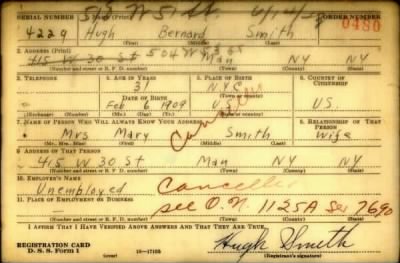 SERIAL NUMBER 1. NAME (Print) ORDER NUMBER
4229 Hugh Bernard Smith 0480
(First) (Middle) (Last)
2. ADDRESS (Print) 504 W 53 St
415 W 30 St Man NY NY
(Number and street or R. F. D. number) (Town) (County) (State)
3. TELEPHONE 4. AGE IN YEARS 5. PLACE OF BIRTH 6. COUNTRY OF CITIZENSHIP
31 N.Y.C.
DATE OF BIRTH
Feb 6 1909 U.S. U.S.
(Exchange) (Number) (Mo.) (Day) (Yr.) (State or country)
7. NAME OF PERSON WHO WILL ALWAYS KNOW YOUR ADDRESS 8. RELATIONSHIP OF THAT PERSON
Mrs Mary Smith Wife
(Mr., Mrs., Miss) (First) (Middle) (Last)
9. ADDRESS OF THAT PERSON
415 W 30 St Man NY NY
(Number and street or R. F. D. number) (Town) (County) (State)
10. EMPLOYER'S NAME
Unemployed Cancelled
11. PLACE OF EMPLOYMENT OR BUSINESS
see O.N. 1125A Ser 7690
(Number and street or R. F. D. number) (Town) (County) (State)
I AFFIRM THAT I HAVE VERIFIED ABOVE ANSWERS AND THAT THEY ARE TRUE.
REGISTRATION CARD
D. S. S. Form 1 16-17105 Hugh Smith